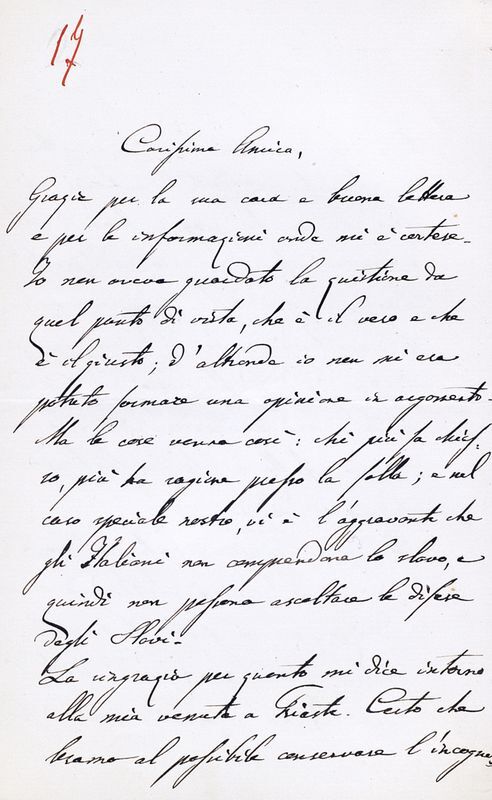 17
Carissima Amica,
Grazie per la sua cara e buona lettera
e per le informazioni onde mi è cortese.
Io non aveva guardato la quistione da
quel punto di vista, che è il vero e che
è il giusto; d'altronde io non mi era
potuto formare una opinione in argomento.
Ma le cose vanno così: chi più fa chias-
so, più ha ragione presso la folla; e nel
caso speciale nostro, vi è l'aggravante che
gli Italiani non comprendono lo slavo, e
quindi non possono ascoltare le difese
degli Slavi.
La ringrazio per quanto mi dice intorno
alla mia venuta a Trieste. Certo che
bramo al possibile conservare l'incogni